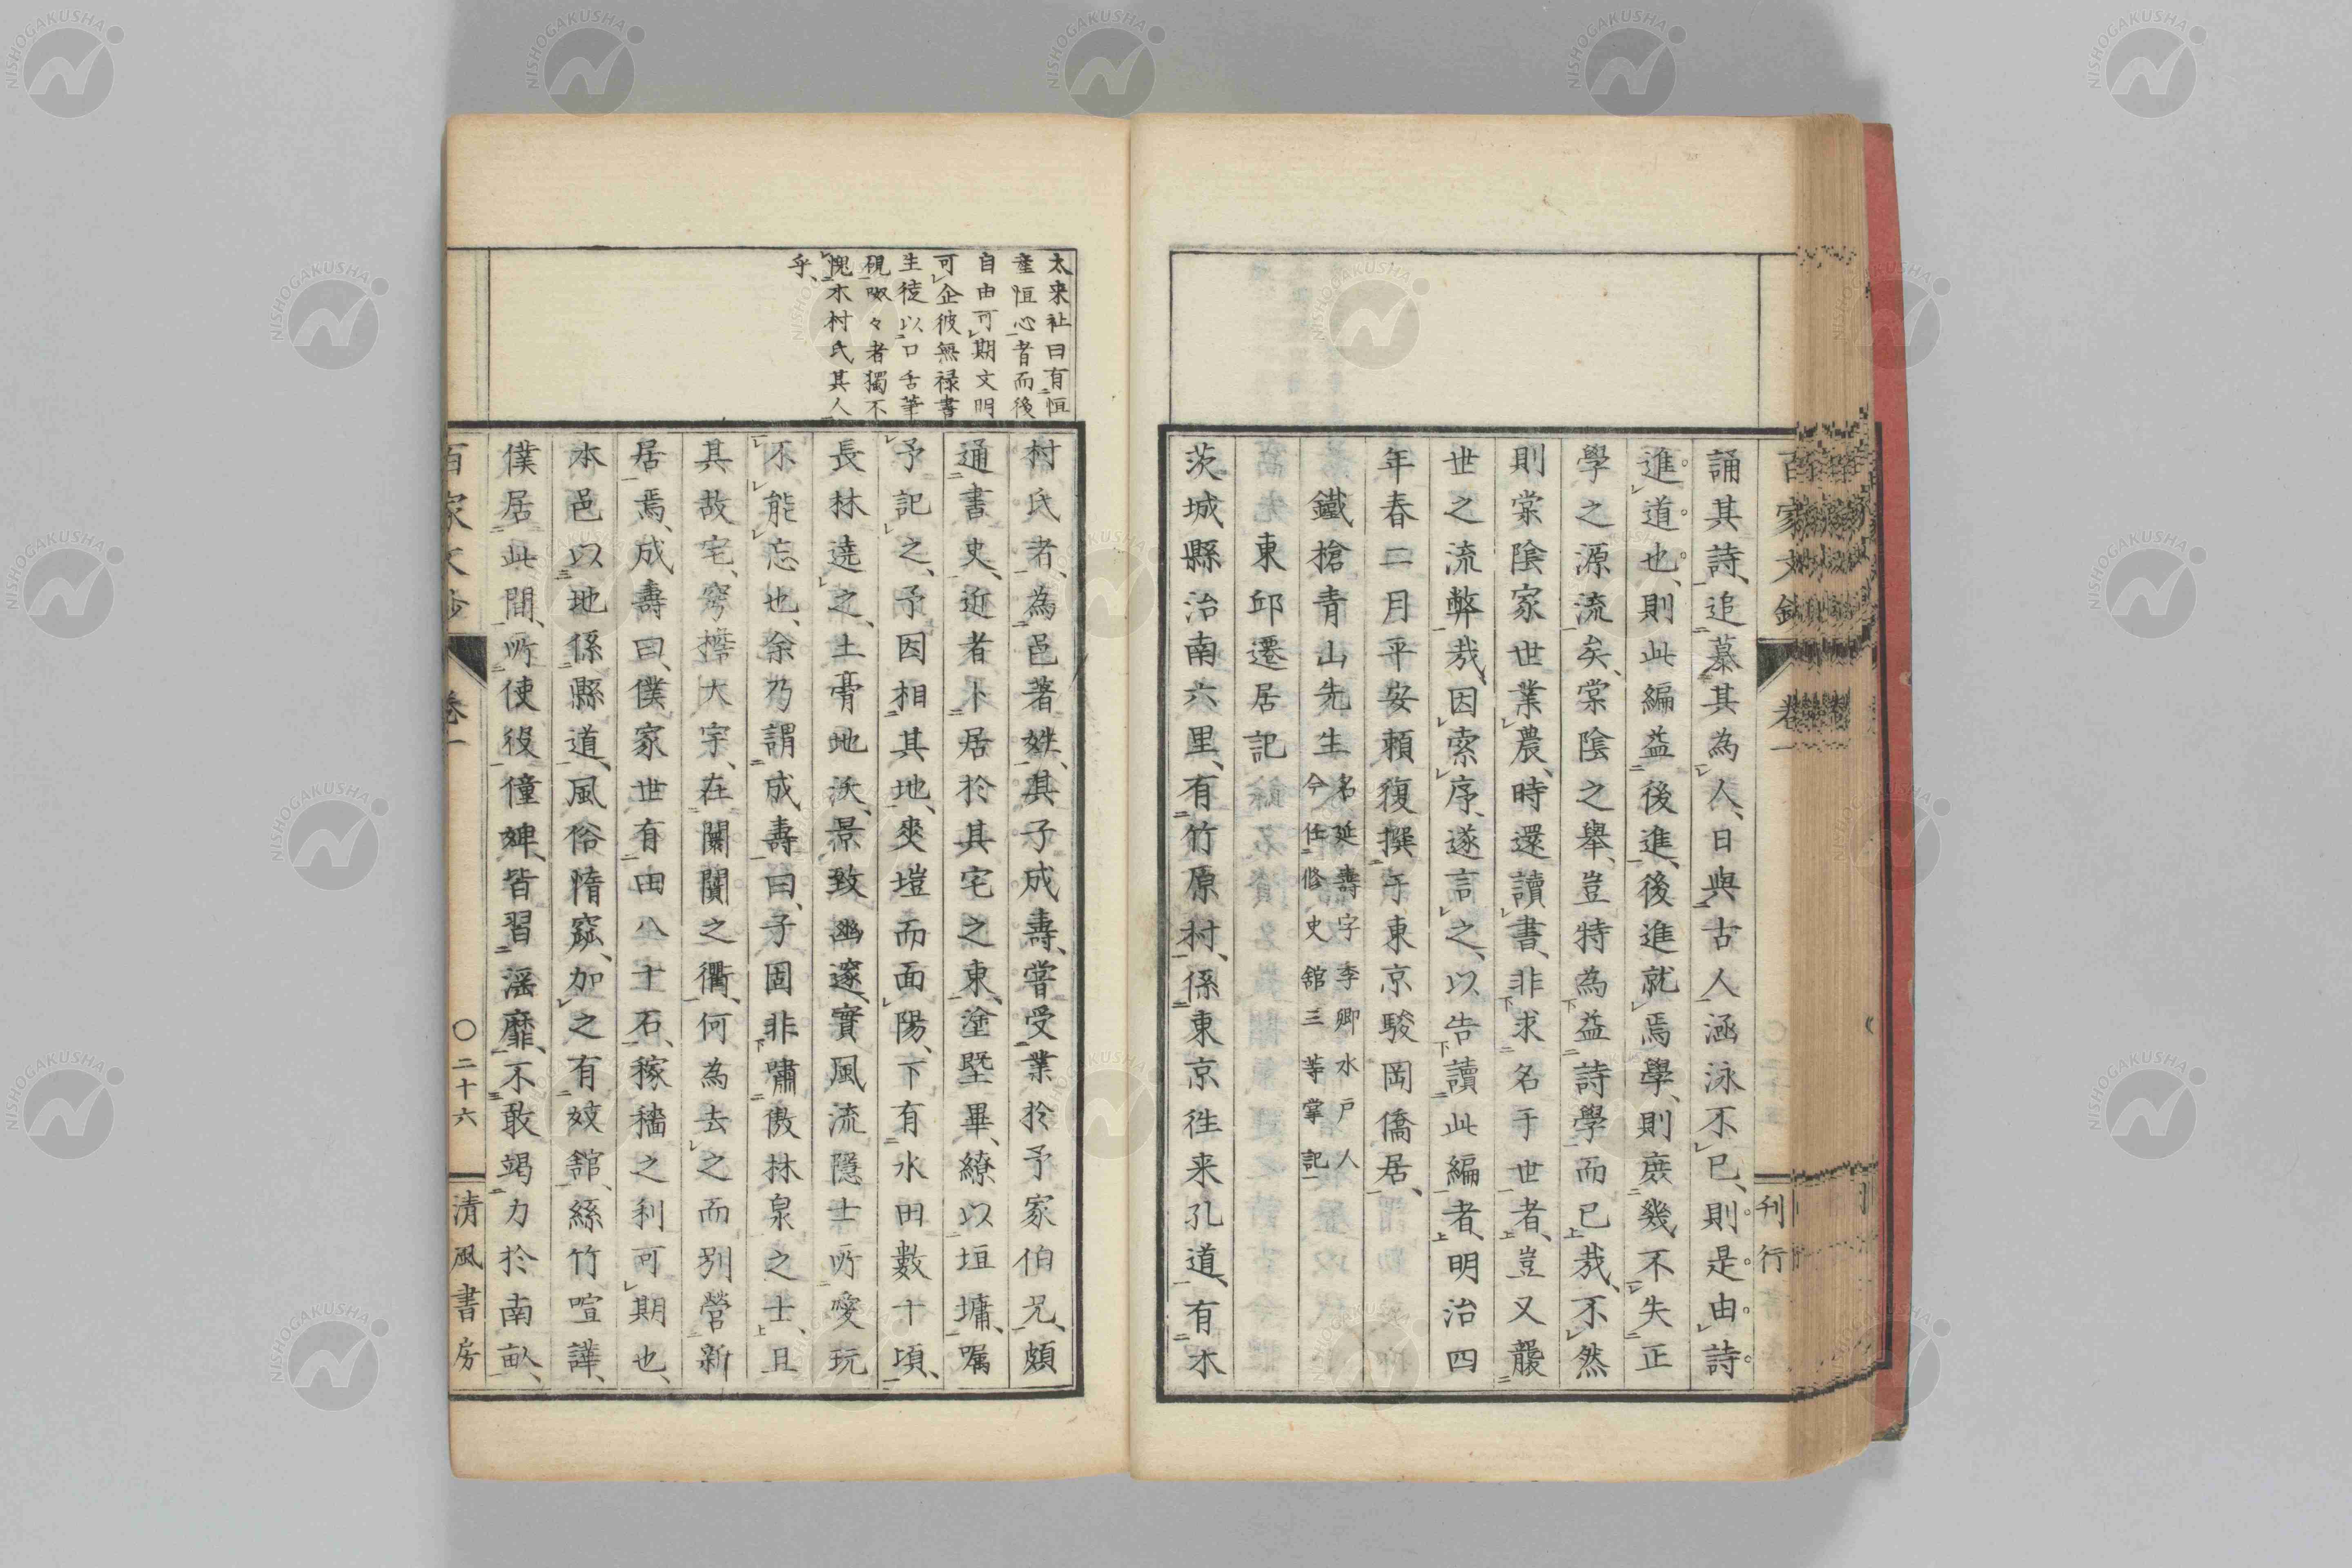 百家文鈔
卷一
刊行
誦其詩、追慕其為人、日與古人涵泳不已、則是由詩
進道也、則此編益後進、後進就焉學、則庶幾不失正
學之源流矣、棠陰之舉、豈特為益詩學而已哉、不然
則棠陰家世業農、時還讀書、非求名于世者、豈又襲
世之流弊哉、因索序、遂言之、以告讀此編者、明治四
年春二月平安賴復撰于東京駿岡僑居、
鐵槍青山先生
名延壽字季卿水戸人
今仕修史舘三等掌記
東邱遷居記
茨城縣治南六里、有竹原村、係東京徃来孔道、有木
太来社曰有恒
産恒心者而後
自由可期文明
可企彼無禄書
生徒以口舌筆
硯呶々者獨不
愧木村氏其人
乎、
村氏者、為邑著姓、其子成壽、嘗受業於予家伯兄、頗
通書史、近者卜居於其宅之東、塗墍畢、繚以垣墉、嘱
予記之、予因相其地、爽塏而面陽、下有水田數十頃、
長林遶之、土膏地沃、景致幽邃、實風流隱士所愛玩
不能忘也、余乃謂成壽曰、子固非嘯傲林泉之士、且
其故宅、穹擔大宇、在闤闠之衢、何為去之而別營新
居焉、成壽曰、僕家世有田八十石、稼穡之利可期也、
本邑以地係縣道、風俗惰窳、加之有妓舘、絲竹喧譁、
僕居此間、所使役僮婢、皆習滛靡、不敢竭力於南畝、
百家文鈔
卷一
〇二十六
清風書房